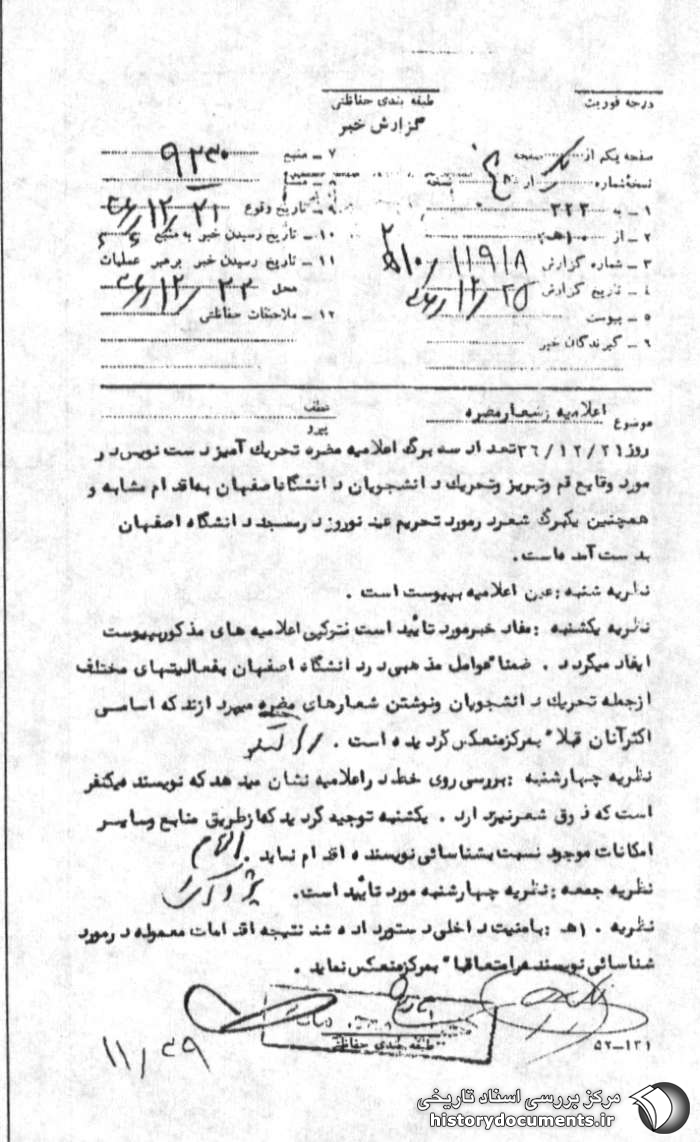 درجه فوریت
طبقه بندی حفاظتی
گزارش خبر
صفحه یکم از یک صفحه
نسخه شماره از نسخه
۱ ـ به ۳۲۲
۲ ـ از ۱۰ه
۳ ـ شماره گزارش ۱۱۹۱۸ / ۱۰ه۲
۴ ـ تاریخ گزارش ۲۵ / ۱۲ / ۳۶
۵ ـ پیوست
۶ ـ گیرندگان خبر
۷ ـ منبع ۹۲۳۰
۸ ـ منشأ
۹ ـ تاریخ وقوع ۲۱ / ۱۲ / ۳۶
۱۰ ـ تاریخ رسیدن خبر به منبع
۱۱ ـ تاریخ رسیدن خبر برهبر عملیات
محل ۲۲ / ۱۲ / ۳۶
۱۲ ـ ملاحظات حفاظتی
موضوع اعلامیه و شعار مضره
عطف
پیرو
روز ۳۶/۱۲/۲۱ تعداد سه برگ اعلامیه مضره تحریك آمیز دست نویس در
مورد وقایع قم وتبریز وتحریك دانشجویان دانشگاه اصفهان به اقدام مشابه و
همچنین یکبرگ شعر در مورد تحریم عید نوروز در مسجد دانشگاه اصفهان
بدست آمده است .
نظریه شنبه : عین اعلامیه بپیوست است .
نظریه یکشنبه : مفاد خبر مورد تائید است فتوکپی اعلامیه های مذکور بپیوست
ایفاد میگردد . ضمنا" عوامل مذهبی در دانشگاه اصفهان بفعالیتهای مختلف
از جمله تحریك دانشجویان و نوشتن شعارهای مضره میپردازند که اسامی
اکثر آنان قبلا" بمرکز منعکس گردیده است .
نظریه چهارشنبه : بررسی روی خط در اعلامیه نشان میدهد که نویسنده یکنفر
است که ذوق شعر نیز دارد . یکشنبه توجیه گردید که از طریق منابع و سایر
امکانات موجود نسبت بشناسائی نویسنده اقدام نماید .
نظریه جمعه : نظریه چهارشنبه مورد تائید است .
نظریه ۱۰ه : بامنیت داخلی دستور داده شد نتیجه اقدامات معموله در مورد
شناسائی نویسنده را متعاقبا" بمرکز منعکس نماید .
طبقه بندی حفاظتی
۵۲ــ۱۳۱
۱۱ / ۲۹
مرکز بررسی اسناد تاریخی
historydocuments.ir